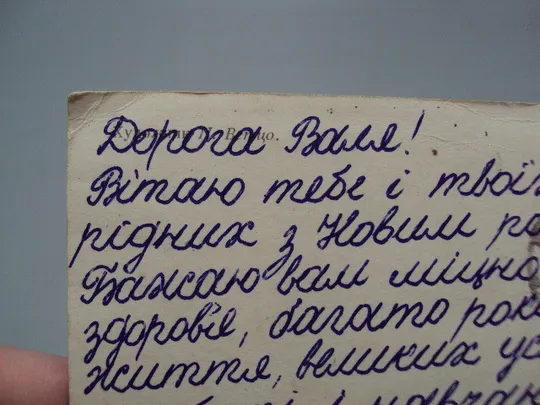 Дорога Валя!
Вітаю тебе і твоїх
рідних з Новим ро
Бажаю вам міцно
здоров'я, багато рок
життя, великих ус